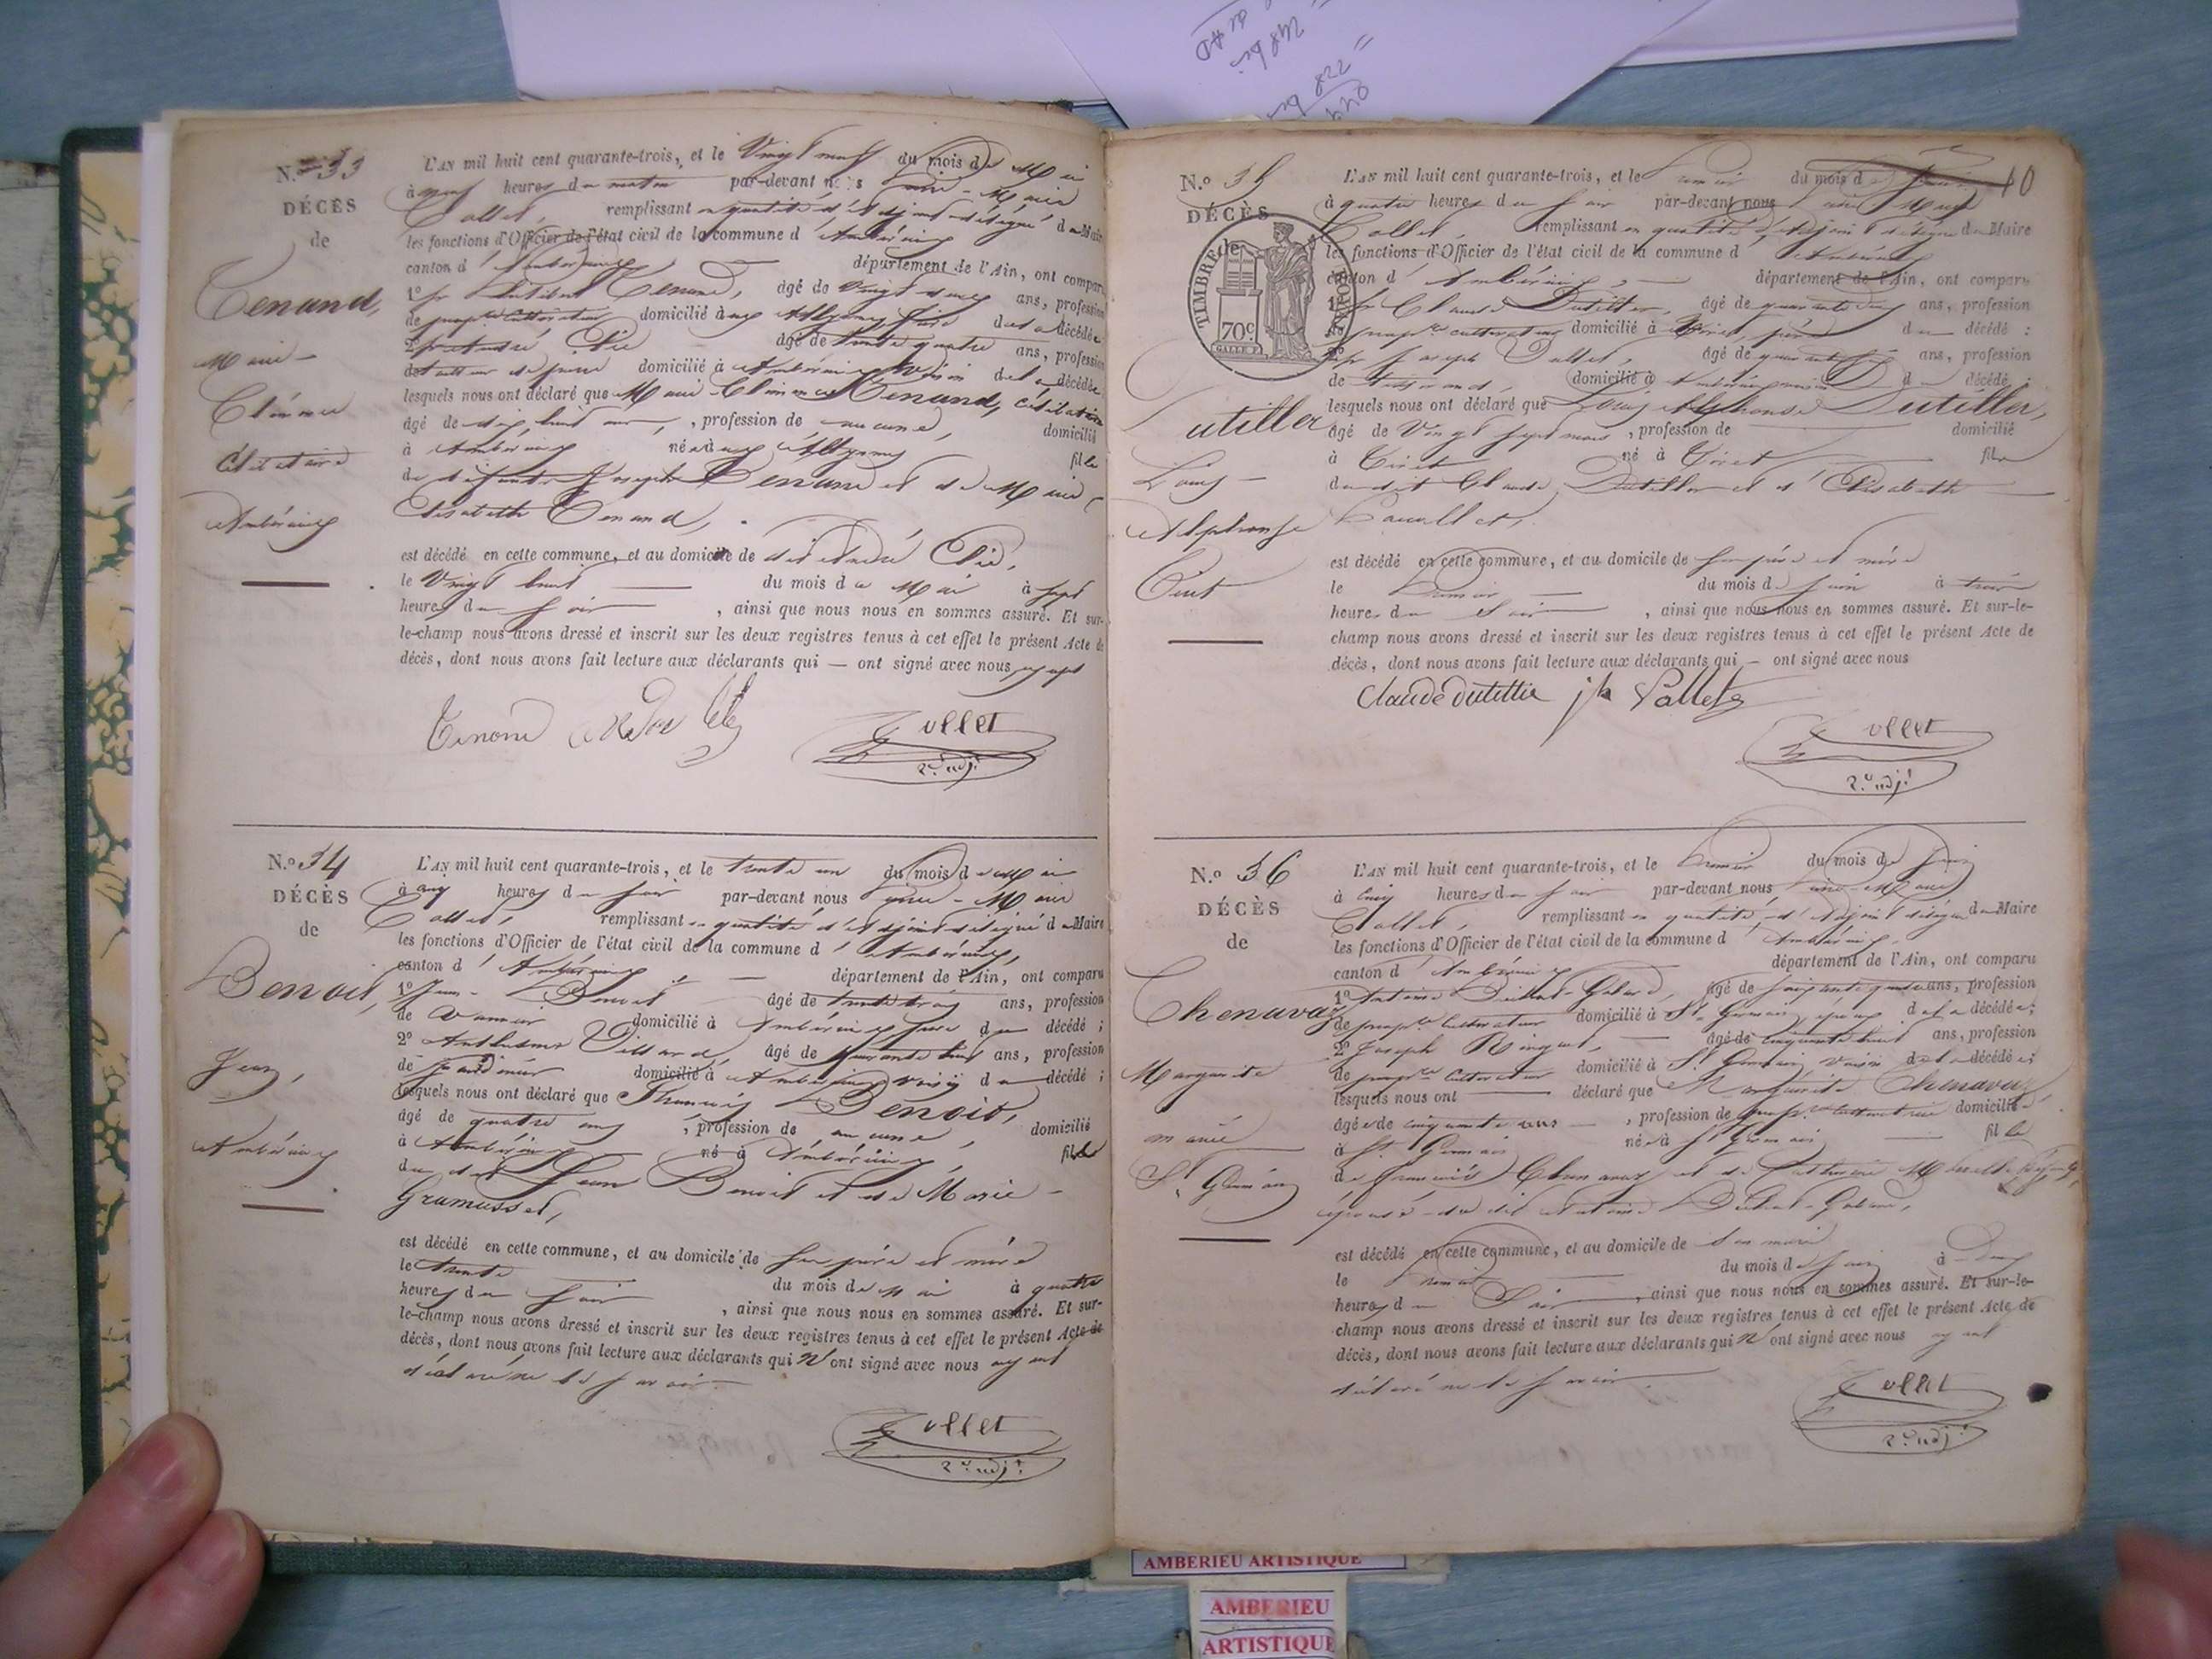 N.o 33
DÉCÈS
de
Tenand,
Marie
Clémence
Célibataire
Ambérieux
L'AN mil huit cent quarante-trois, et le Vingt neuf du mois de Mai
à neuf heures du matin par-devant nous Marie
Tollet, remplissant en qualité d'adjoint délégué du Maire
les fonctions d'Officier de l'état civil de la commune d'Ambérieux
canton d'Ambérieux, département de l'Ain, ont comparu
1o Tenand, âgé de Vingt ans, profession
de cultivateur domicilié à décédée
2o André âgé de trente quatre ans, profession
de domicilié à Ambérieux Voisin de la décédée
lesquels nous ont déclaré que Marie Clémence Tenand, célibataire
âgé de dix huit ans, profession de aucune, domicilié
à Ambérieux née à fille
de défunt Joseph Tenand et de Marie
Elisabeth Tenand,
est décédé en cette commune, et au domicile de dit André
le Vingt huit du mois de Mai à sept
heures du soir, ainsi que nous nous en sommes assuré. Et sur-
le-champ nous avons dressé et inscrit sur les deux registres tenus à cet effet le présent Acte de
décès, dont nous avons fait lecture aux déclarants qui — ont signé avec nous
Tenand
Tollet
2e adjt
N.o 34
DÉCÈS
de
Benoit,
Jean,
Ambérieux
L'AN mil huit cent quarante-trois, et le trente un du mois de Mai
à cinq heures du soir par-devant nous Marie
Tollet, remplissant en qualité d'adjoint délégué du Maire
les fonctions d'Officier de l'état civil de la commune d'Ambérieux,
canton d'Ambérieux, département de l'Ain, ont comparu
1o Jean Benoit âgé de trente trois ans, profession
de domicilié à Ambérieux père du décédé;
2o Anthelme âgé de quarante huit ans, profession
de domicilié à Ambérieux voisin du décédé;
lesquels nous ont déclaré que François Benoit,
âgé de quatre ans, profession de aucune, domicilié
à Ambérieux né à Ambérieux, fils
du dit Jean Benoit et de Marie
Gramusset,
est décédé en cette commune, et au domicile de ses père et mère
le trente du mois de Mai à quatre
heures du soir, ainsi que nous nous en sommes assuré. Et sur-
le-champ nous avons dressé et inscrit sur les deux registres tenus à cet effet le présent Acte de
décès, dont nous avons fait lecture aux déclarants qui n'ont signé avec nous ayant
déclaré ne le savoir
Tollet
2e adjt
10
N.o 35
DÉCÈS
de
TIMBRE ROYAL
70c
Dutiller
Louis
Alphonse
Tiret
L'AN mil huit cent quarante-trois, et le premier du mois de Juin
à quatre heures du soir par-devant nous
Tollet, remplissant en qualité d'adjoint délégué du Maire
les fonctions d'Officier de l'état civil de la commune d'Ambérieux
canton d'Ambérieux, département de l'Ain, ont comparu
1o Claude Dutiller, âgé de quarante ans, profession
de cultivateur domicilié à Tiret, père du décédé;
2o Joseph Vallet, âgé de quarante ans, profession
de tisserand, domicilié à Ambérieux du décédé;
lesquels nous ont déclaré que Louis Alphonse Dutiller,
âgé de Vingt sept mois, profession de domicilié
à Tiret né à Tiret fils
du dit Claude Dutiller et d'Elisabeth
est décédé en cette commune, et au domicile de ses père et mère
le premier du mois de Juin à trois
heures du soir, ainsi que nous nous en sommes assuré. Et sur-le-
champ nous avons dressé et inscrit sur les deux registres tenus à cet effet le présent Acte de
décès, dont nous avons fait lecture aux déclarants qui — ont signé avec nous
Claude dutillier jh Vallet
Tollet
2e adjt
N.o 36
DÉCÈS
de
Chenavaz
Marguerite
mariée
St Germain
L'AN mil huit cent quarante-trois, et le premier du mois de Juin
à cinq heures du soir par-devant nous Marie
Tollet, remplissant en qualité d'adjoint délégué du Maire
les fonctions d'Officier de l'état civil de la commune d'Ambérieux,
canton d'Ambérieux département de l'Ain, ont comparu
1o Antoine âgé de soixante ans, profession
de cultivateur domicilié à St Germain, époux de la décédée;
2o Joseph âgé de cinquante huit ans, profession
de cultivateur domicilié à St Germain voisin de la décédée;
lesquels nous ont déclaré que Marguerite Chenavaz
âgée de cinquante ans, profession de cultivatrice domiciliée
à St Germain née à St Germain fille
de François Chenavaz et de Catherine
épouse du dit Antoine
est décédé en cette commune, et au domicile de son mari
le premier du mois de Juin à deux
heures du soir, ainsi que nous nous en sommes assuré. Et sur-le-
champ nous avons dressé et inscrit sur les deux registres tenus à cet effet le présent Acte de
décès, dont nous avons fait lecture aux déclarants qui n'ont signé avec nous ayant
déclaré ne le savoir
Tollet
2e adjt
AMBERIEU ARTISTIQUE
AMBERIEU
ARTISTIQUE